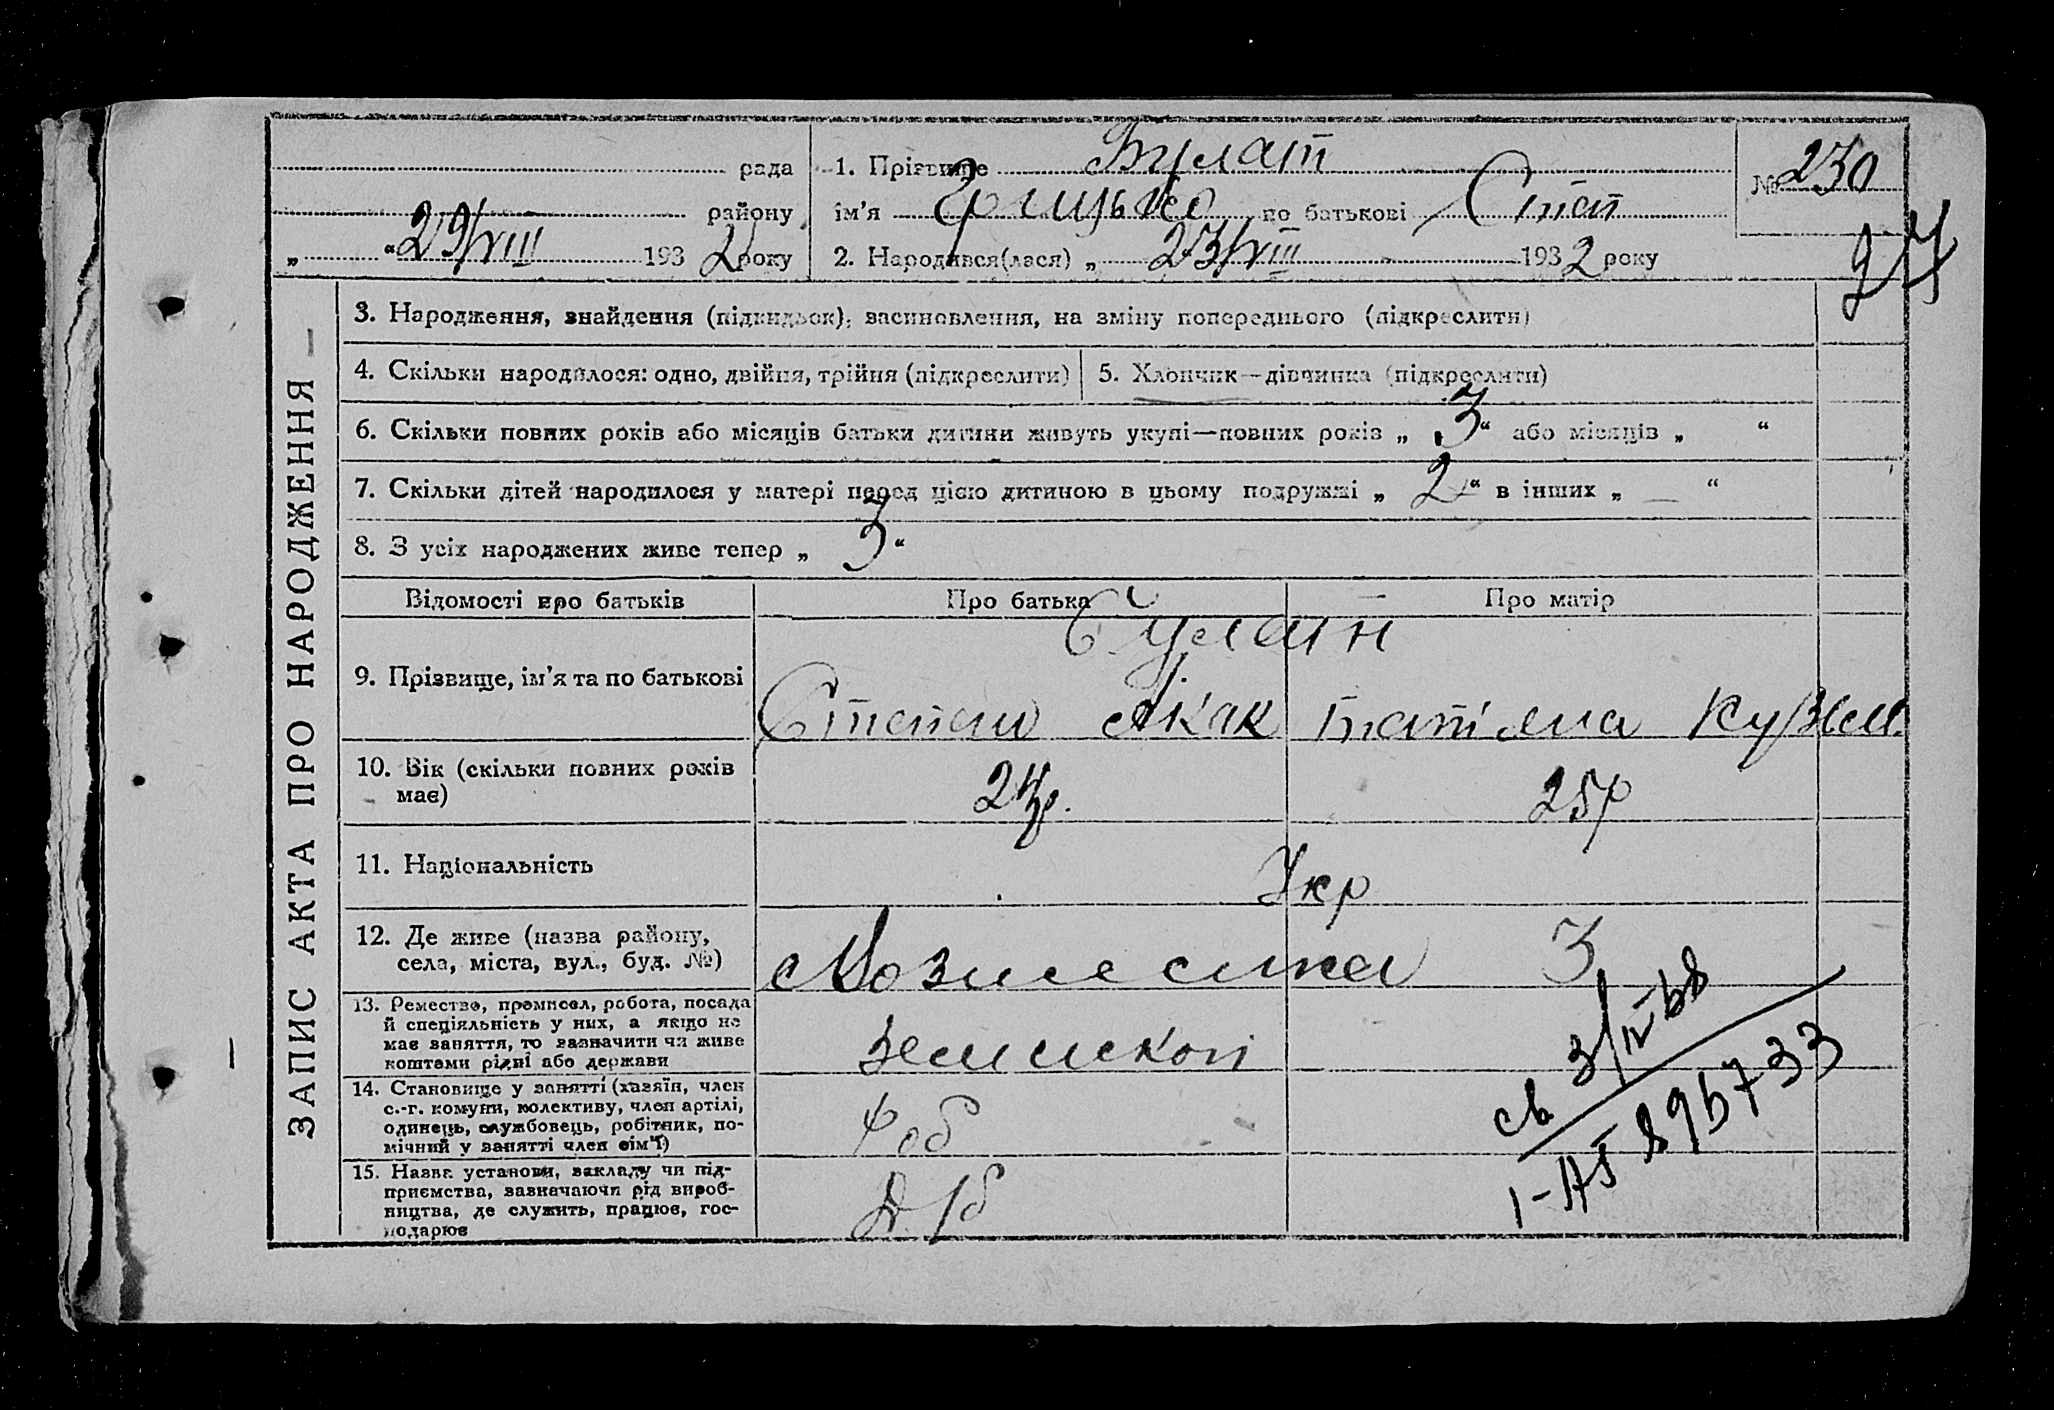 рада
району
„ “ 29/VIII 1932 року
1. Прізвище Булат
ім'я Грицько по батькові Степ
2. Народився(лася) „ 23/VIII 1932 року
№ 230
ЗАПИС АКТА ПРО НАРОДЖЕННЯ —
3. Народження, знайдення (підкидьок), засиновлення, на зміну попереднього (підкреслити)
4. Скільки народилося: одно, двійня, трійня (підкреслити)
5. Хлопчик—дівчинка (підкреслити)
6. Скільки повних років або місяців батьки дитини живуть укупі—повних років „ 3 “ або місяців „ “
7. Скільки дітей народилося у матері перед цією дитиною в цьому подружжі „ 2 “ в інших „ — “
8. З усіх народжених живе тепер „ 3 “
Відомості про батьків
Про батька
Про матір
9. Прізвище, ім'я та по батькові
Булати
Степан Акак
Татіяна Кузьм.
10. Вік (скільки повних років
має)
24р.
25р
11. Національність
Укр
12. Де живе (назва району,
села, міста, вул., буд. №)
3
13. Ремество, промисел, робота, посада
й спеціяльність у них, а якщо не
має заняття, то зазначити чи живе
коштами рідні або держави
землекоп
14. Становище у занятті (хазяїн, член
с.-г. комуни, колективу, член артілі,
одинець, службовець, робітник, по-
мічний у занятті член сім'ї)
Роб
15. Назва установи, закладу чи під-
приємства, зазначаючи рід вироб-
ництва, де служить, працює, гос-
подарює
св 3/IV-68